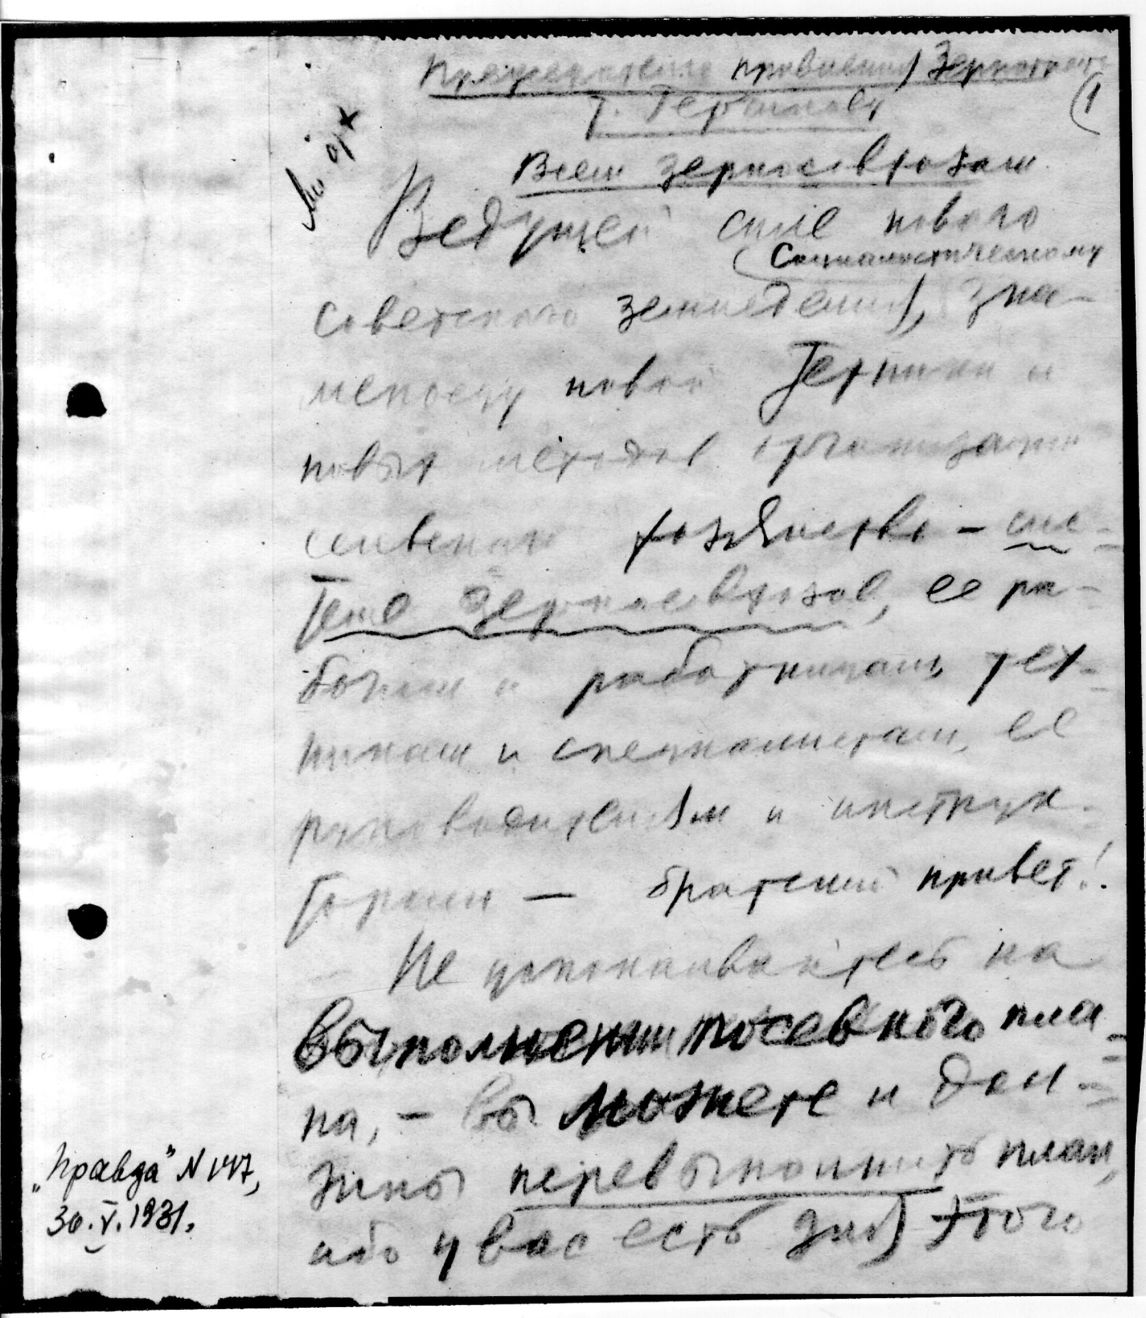 Председателю правления Зернотреста
т. Герчикову
(1
Всем зерносовхозам
Ведущей силе нового
(социалистическому
советского земледелия), зна-
меносцу новой техники и
новых методов организации
сельского хозяйства – сис-
теме зерносовхозов, ее ра-
бочим и работницам, тех-
никам и специалистам, ее
руководителям и инструк-
торам — братский привет!
Не успокаивайтесь на
выполнении посевного пла-
на, – вы можете и дол-
жны перевыполнить план,
ибо у вас есть для этого
„Правда" N 147,
30.V.1931.